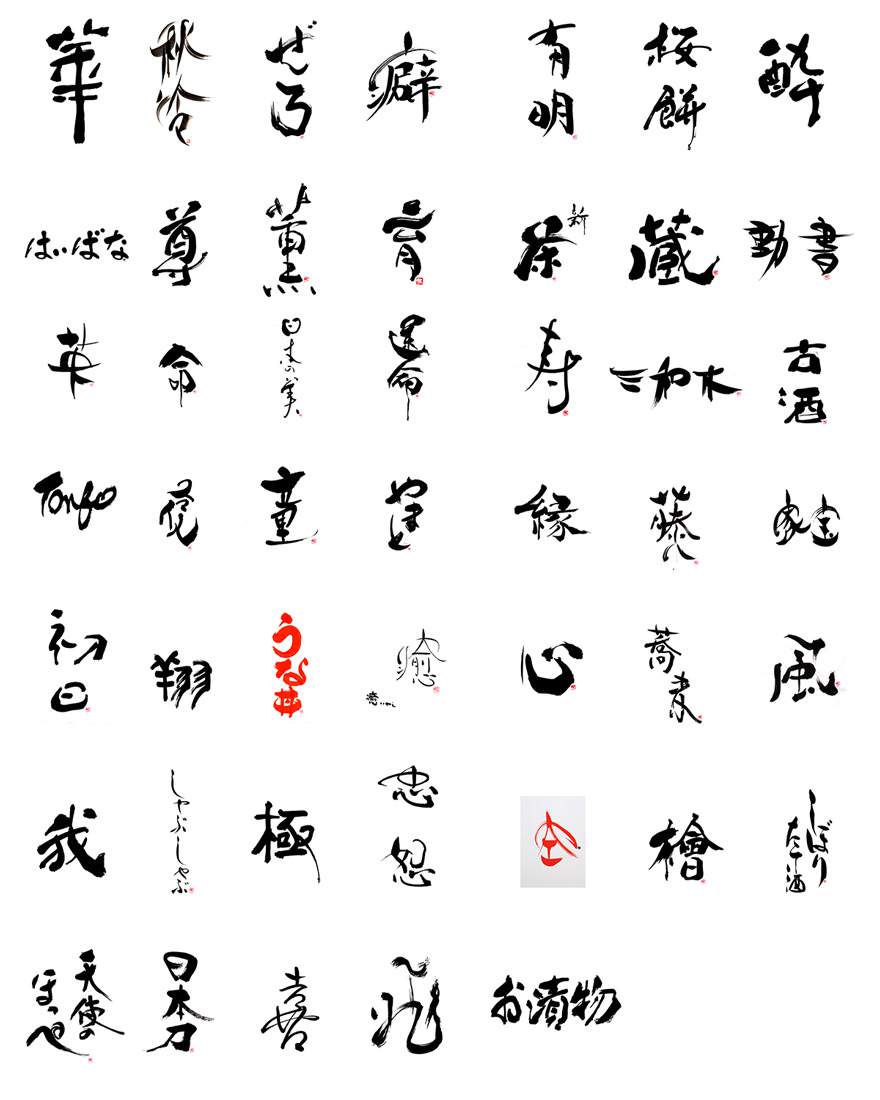 華
秋冷
ぜろ
癖
有明
桜餅
酔
はいばな
尊
薫
育
新茶
蔵
動書
英
命
日本の美
運命
寿
三和木
古酒
Tonbo
童
やまと
縁
藤八
家宝
初日
翔
うな丼
癒
心
蕎麦
風
我
しゃぶしゃぶ
極
忠恕
檜
しぼりたて酒
天使のほっぺ
日本刀
喜
飛
お漬物